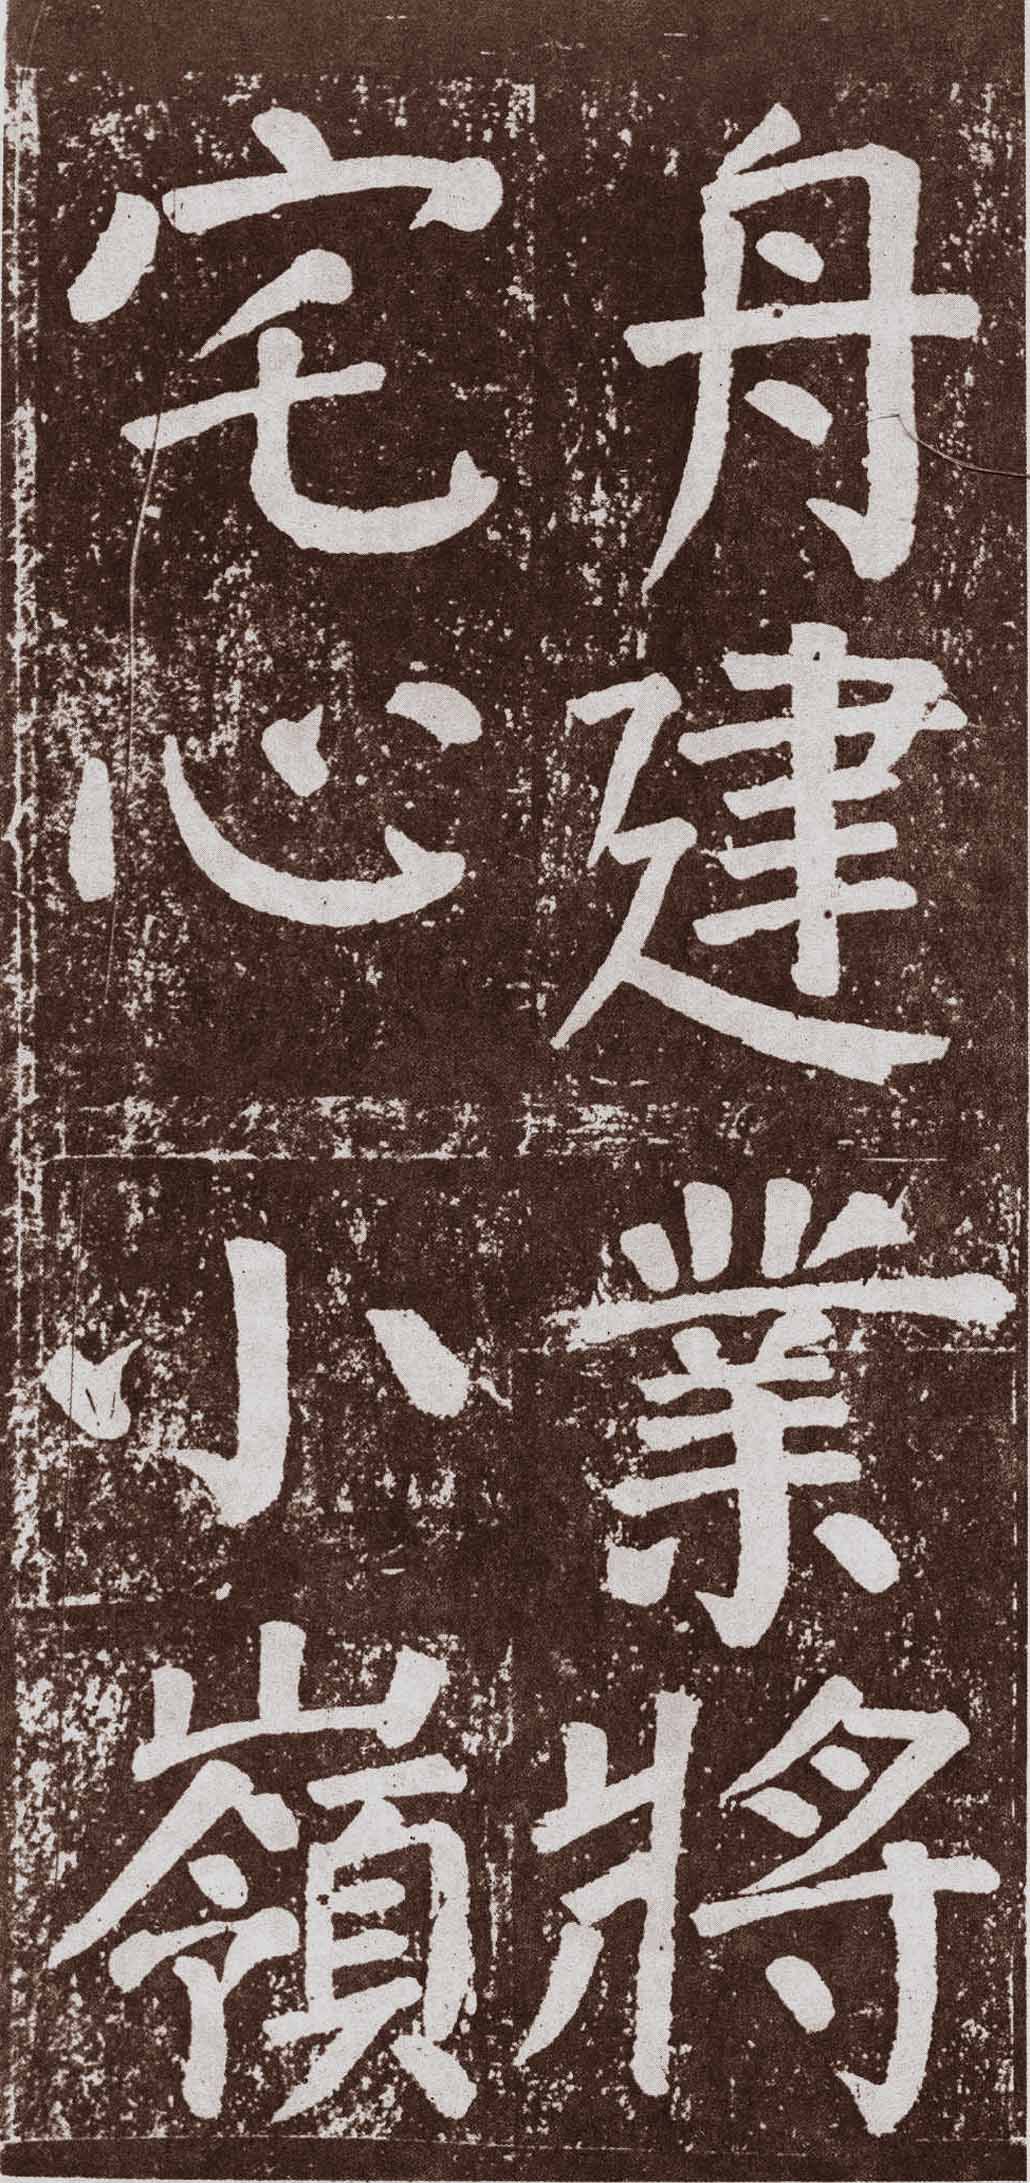 舟建業將
宅心小嶺